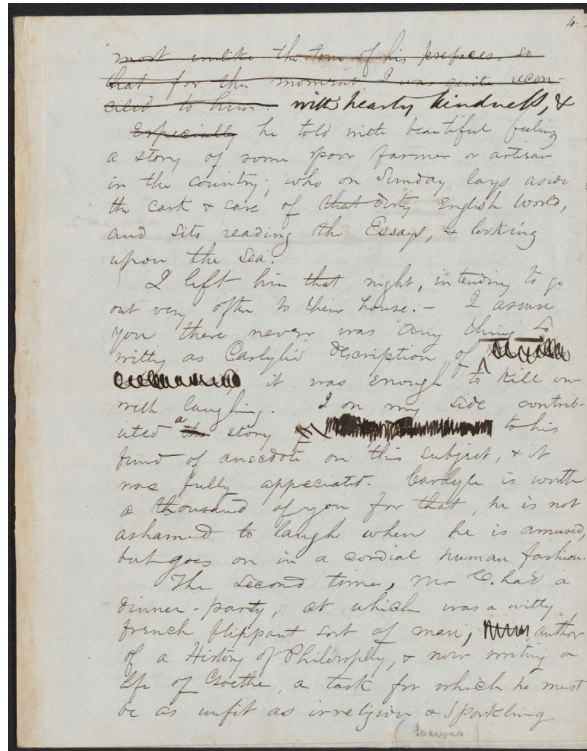 4
most unlike the tone of his prefaces, so
that for the moment I was quite recon-
ciled to him with hearty kindness, &
Especially he told with beautiful feeling
a story of some poor farmer or artisan
in the country, who on Sunday lays aside
the cark & care of that dirty English world,
and sits reading the Essays, & looking
upon the sea.
I left him that night, intending to go
out very often to their house. — I assure
you there never was any thing so
witty as Carlyle's description of
it was enough to kill one
with laughing. I on my side contrib-
uted a story to his
fund of anecdote on this subject, & it
was fully appreciated. Carlyle is worth
a thousand of you for that, he is not
ashamed to laugh when he is amused,
but goes on in a cordial human fashion.
The second time, Mr C. had a
dinner-party, at which was a witty
French flippant sort of man, author
of a History of Philosophy, & now writing a
life of Goethe, a task for which he must
be as unfit as irreligion & sparkling
(Lewes)